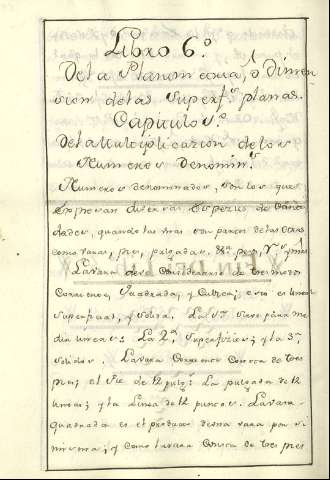 Libro 6.º
De la Planometria, o Dimen
sion de las Superf.s planas.
Capitulo 1.º
De la Multiplicazion de los
Numeros Denomin.s
Numeros denominados, son los que
Espresan diversas Especies de Canti
dades, quando las unas son partes de las otras
como varas, pies, pulgadas, &a
La vara debe considerarse de tres modos
Corriente, Quadrada, y Cubica; esto es lineal
Superficial, y solida. La 1.ª sirve para me
dir lineas: La 2.ª Superficies; y la 3.ª
solidos. La vara Corriente Consta de tres
pies; el Pie de 12 pulg.s La pulgada de 12
lineas; y la Linea de 12 puntos. La vara
quadrada es el producto de una vara por si
misma; y como la vara Consta de tres pies